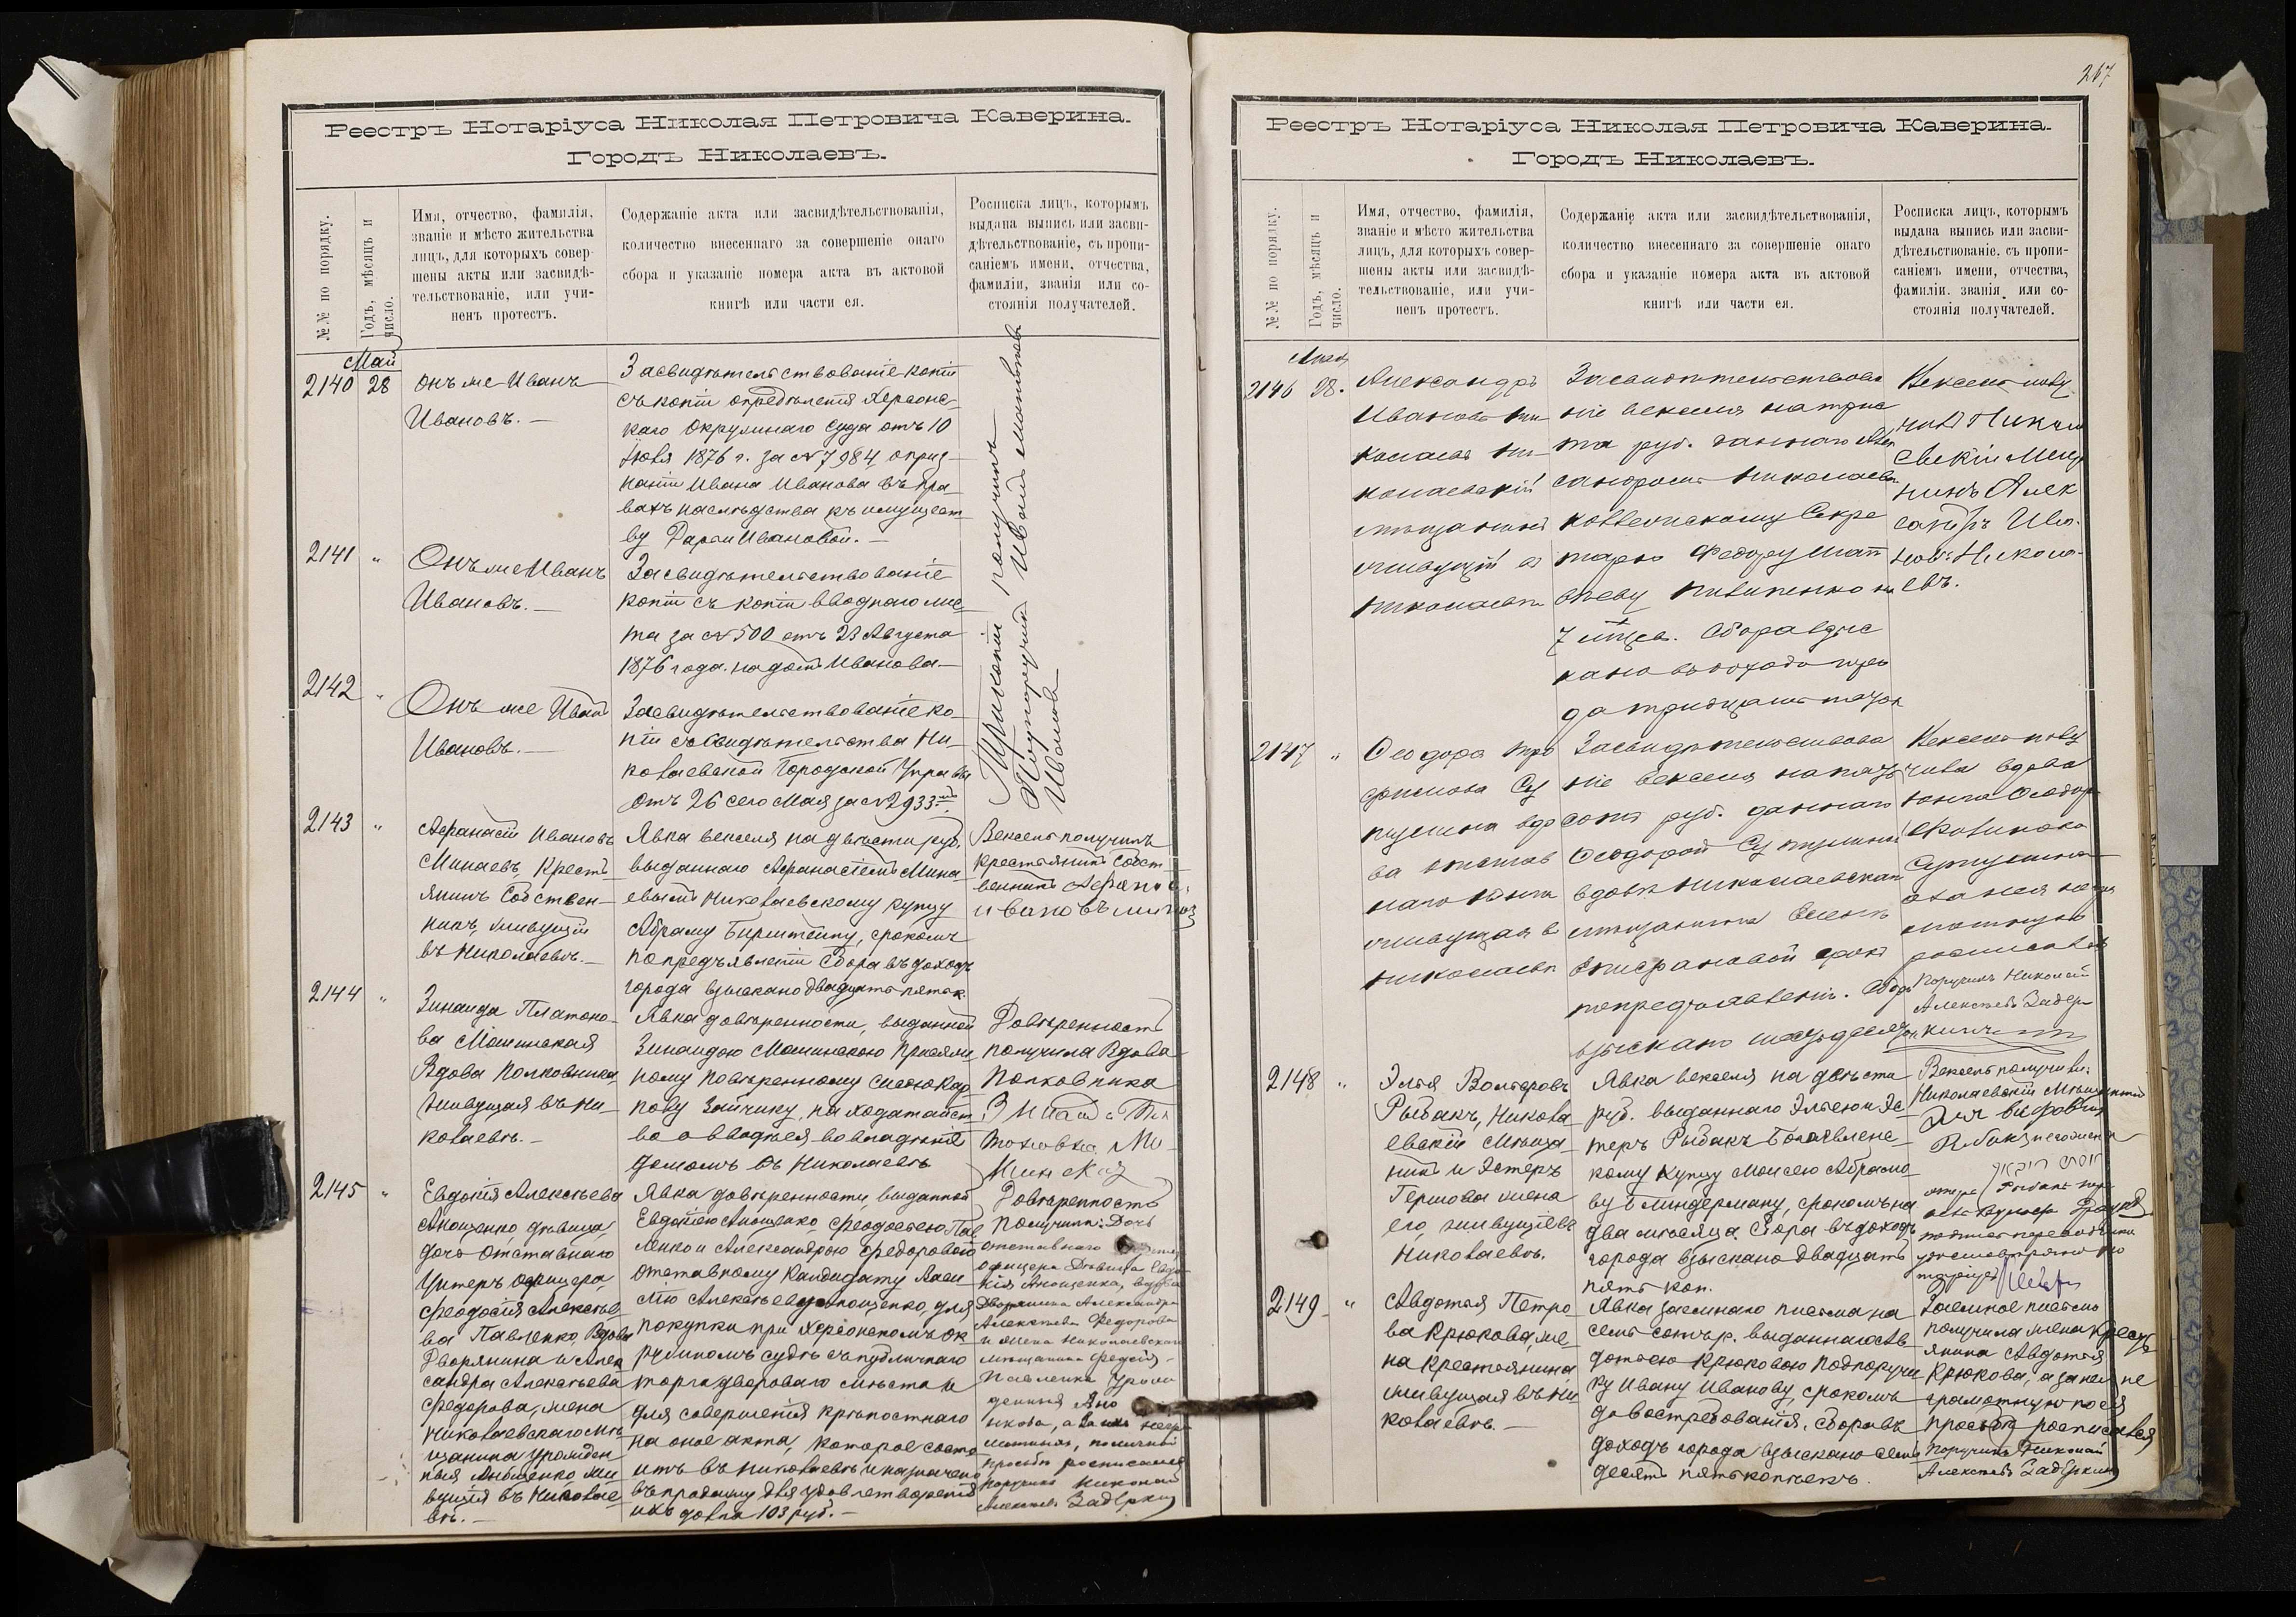 Реестръ Нотаріуса Николая Петровича Каверина.
Городъ Николаевъ.
№№ по порядку.
Годъ, мѣсяцъ и
число.
Имя, отчество, фамилія,
званіе и мѣсто жительства
лицъ, для которыхъ совер-
шены акты или засвидѣ-
тельствованіе, или учи-
ненъ протестъ.
Содержаніе акта или засвидѣтельствованія,
количество внесеннаго за совершеніе онаго
сбора и указаніе номера акта въ актовой
книгѣ или части ея.
Росписка лицъ, которымъ
выдана выпись или засви-
дѣтельствованіе, съ пропи-
саніемъ имени, отчества,
фамиліи, званія или со-
стоянія получателей.
Май
2140 28
Онъ же Иванъ
Ивановъ.—
Засвидѣтельствованіе копіи
съ копіи опредѣленія Херсонс-
каго Окружнаго Суда отъ 10
Іюня 1876 г. за № 7984 о приз-
наніи Ивана Иванова въ пра-
вахъ наслѣдства къ имущест-
ву Дарьи Ивановой.—
2141 "
Онъ же Иванъ
Ивановъ.—
Засвидѣтельствованіе
копіи съ копіи вводнаго лис-
та за № 500 отъ 23 Августа
1876 года на домъ Иванова—
2142 "
Онъ же Иванъ
Ивановъ.—
Засвидѣтельствованіе ко-
піи съ Свидѣтельства Ни-
колаевской Городской Управы
отъ 26 сего Мая за № 2933
получилъ
Подпоручикъ Иванъ
Ивановъ
2143 "
Афанасій Ивановъ
Минаевъ, Кресть-
янинъ Собствен-
никъ, живущій
въ Николаевѣ.—
Явка векселя на двѣсти руб.
выданнаго Афанасіемъ Мина-
евымъ Николаевскому купцу
Абраму Бирштейну, срокомъ
по предъявленіи Сбора въ доходъ
города взыскано двадцать пять к.
Вексель получилъ
крестьянинъ собст-
венникъ Афанас
Ивановъ Мина
2144 "
Зинаида Платоно-
ва Мошинская
Вдова Полковника,
живущая въ Ни-
колаевѣ.—
Явка довѣренности, выданной
Зинаидою Мошинскою Присяж-
ному Повѣренному
Зайчику, на ходатайст-
во о вводѣ ея во владѣніе
домомъ въ Николаевѣ
Довѣренность
получила Вдова
Полковника
Зинаида Пла
тоновна Мо
шинская
2145 "
Евдокія Алексѣева
Анощенко, дѣвица,
дочь отставнаго
Унтеръ Офицера,
Феодосія Алексѣе-
ва Павленко, Вдова
Дворянина и Алек
сандра Алексѣева
Федорова, жена
Николаевскаго Мѣ-
щанина урожден-
ныя Анощенко, жи-
вущія въ Николае-
вѣ.—
Явка довѣренности, выданной
Евдокіею Анощенко, Феодосіею Пав
ленко и Александрою Федоровою
отставному Кандидату
Алексѣеву Анощенко, для
покупки при Херсонскомъ Ок-
ружномъ судѣ съ публичнаго
торга двороваго мѣста и
для совершенія крѣпостнаго
на оное акта, которое состо-
итъ въ Николаевѣ и назначено
въ продажу для удовлетворенія
ихъ долга 103 руб.—
Довѣренность
получили: Дочь
отставнаго
офицера Дѣвица Евдо-
кія Анощенко, вдова
Дворянина Александра
Алексѣева Федорова
и жена Николаевскаго
мѣщанина
Павленко Урож
денныя Ано
щенко, а за ихъ негра
мотныхъ, по личной
просьбѣ росписался
Поручикъ Николай
Алексѣевъ Задеркинъ
267
Реестръ Нотаріуса Николая Петровича Каверина.
Городъ Николаевъ.
№№ по порядку.
Годъ, мѣсяцъ и
число.
Имя, отчество, фамилія,
званіе и мѣсто жительства
лицъ, для которыхъ совер-
шены акты или засвидѣ-
тельствованіе, или учи-
ненъ протестъ.
Содержаніе акта или засвидѣтельствованія,
количество внесеннаго за совершеніе онаго
сбора и указаніе номера акта въ актовой
книгѣ или части ея.
Росписка лицъ, которымъ
выдана выпись или засви-
дѣтельствованіе, съ пропи-
саніемъ имени, отчества,
фамиліи, званія, или со-
стоянія получателей.
2146 28.
Александръ
Ивановъ Ни
колаевъ Ни-
колаевскій
мѣщанинъ
живущій въ
Николаевѣ
Засвидѣтельствова
ніе векселя на трис
та руб. даннаго Алек
сандромъ Николаевы
Коллежскому Секре
тарю Федору Мат
вѣеву на
7 мѣсяц. Сбора взыс
кано въ доходъ горо
да тридцать
Вексель полу
чилъ Никол
аевскій Мещ
нинъ Алек
сандръ Ива
новъ Никола-
евъ.
2147 "
Феодора Тро
фимова Су
вдо
ва отстав
наго
живущая въ
Николаевѣ
Засвидѣтельствова
ніе векселя на
сотъ руб. даннаго
Феодорой
вдовѣ Николаевскаго
мѣщанина
срокъ
по предъявленіи. Сбора
взыскано
Вексель полу
чила вдова
а за нея негра
мотную
росписался
Поручикъ Николай
Алексѣевъ Задер-
кинъ
2148 "
Элья Вольфовъ
Рыбакъ, Никола-
евскій Мѣща-
нинъ и Эстеръ
Гершова жена
его, живущіе въ
Николаевѣ.
Явка векселя на двѣсти
руб. выданнаго Эльею и Эс
теръ Рыбакъ Богоявленс-
кому Купцу Моисею Абрамо-
ву Блиндерману, срокомъ на
два мѣсяца. Сбора въ доходъ
города взыскано двадцать
пять коп.
Вексель получили:
Николаевскій Мѣщанинъ
2149 "
Авдотья Петро
ва Крюкова, же-
на Крестьянина,
живущая въ Ни-
колаевѣ.—
Явка заемнаго письма на
семь сотъ р. выданнаго Ав-
дотьею Крюковою Подпоручи
ку Ивану Иванову, срокомъ
до востребованія. Сбора въ
доходъ города взыскано семь
десятъ пять копѣекъ.
Заемное письмо
получила жена Кресть
янина Авдотья
Крюкова, а за нея не
грамотную по ея
просьбѣ росписался
Поручикъ Николай
Алексѣевъ Задеркинъ